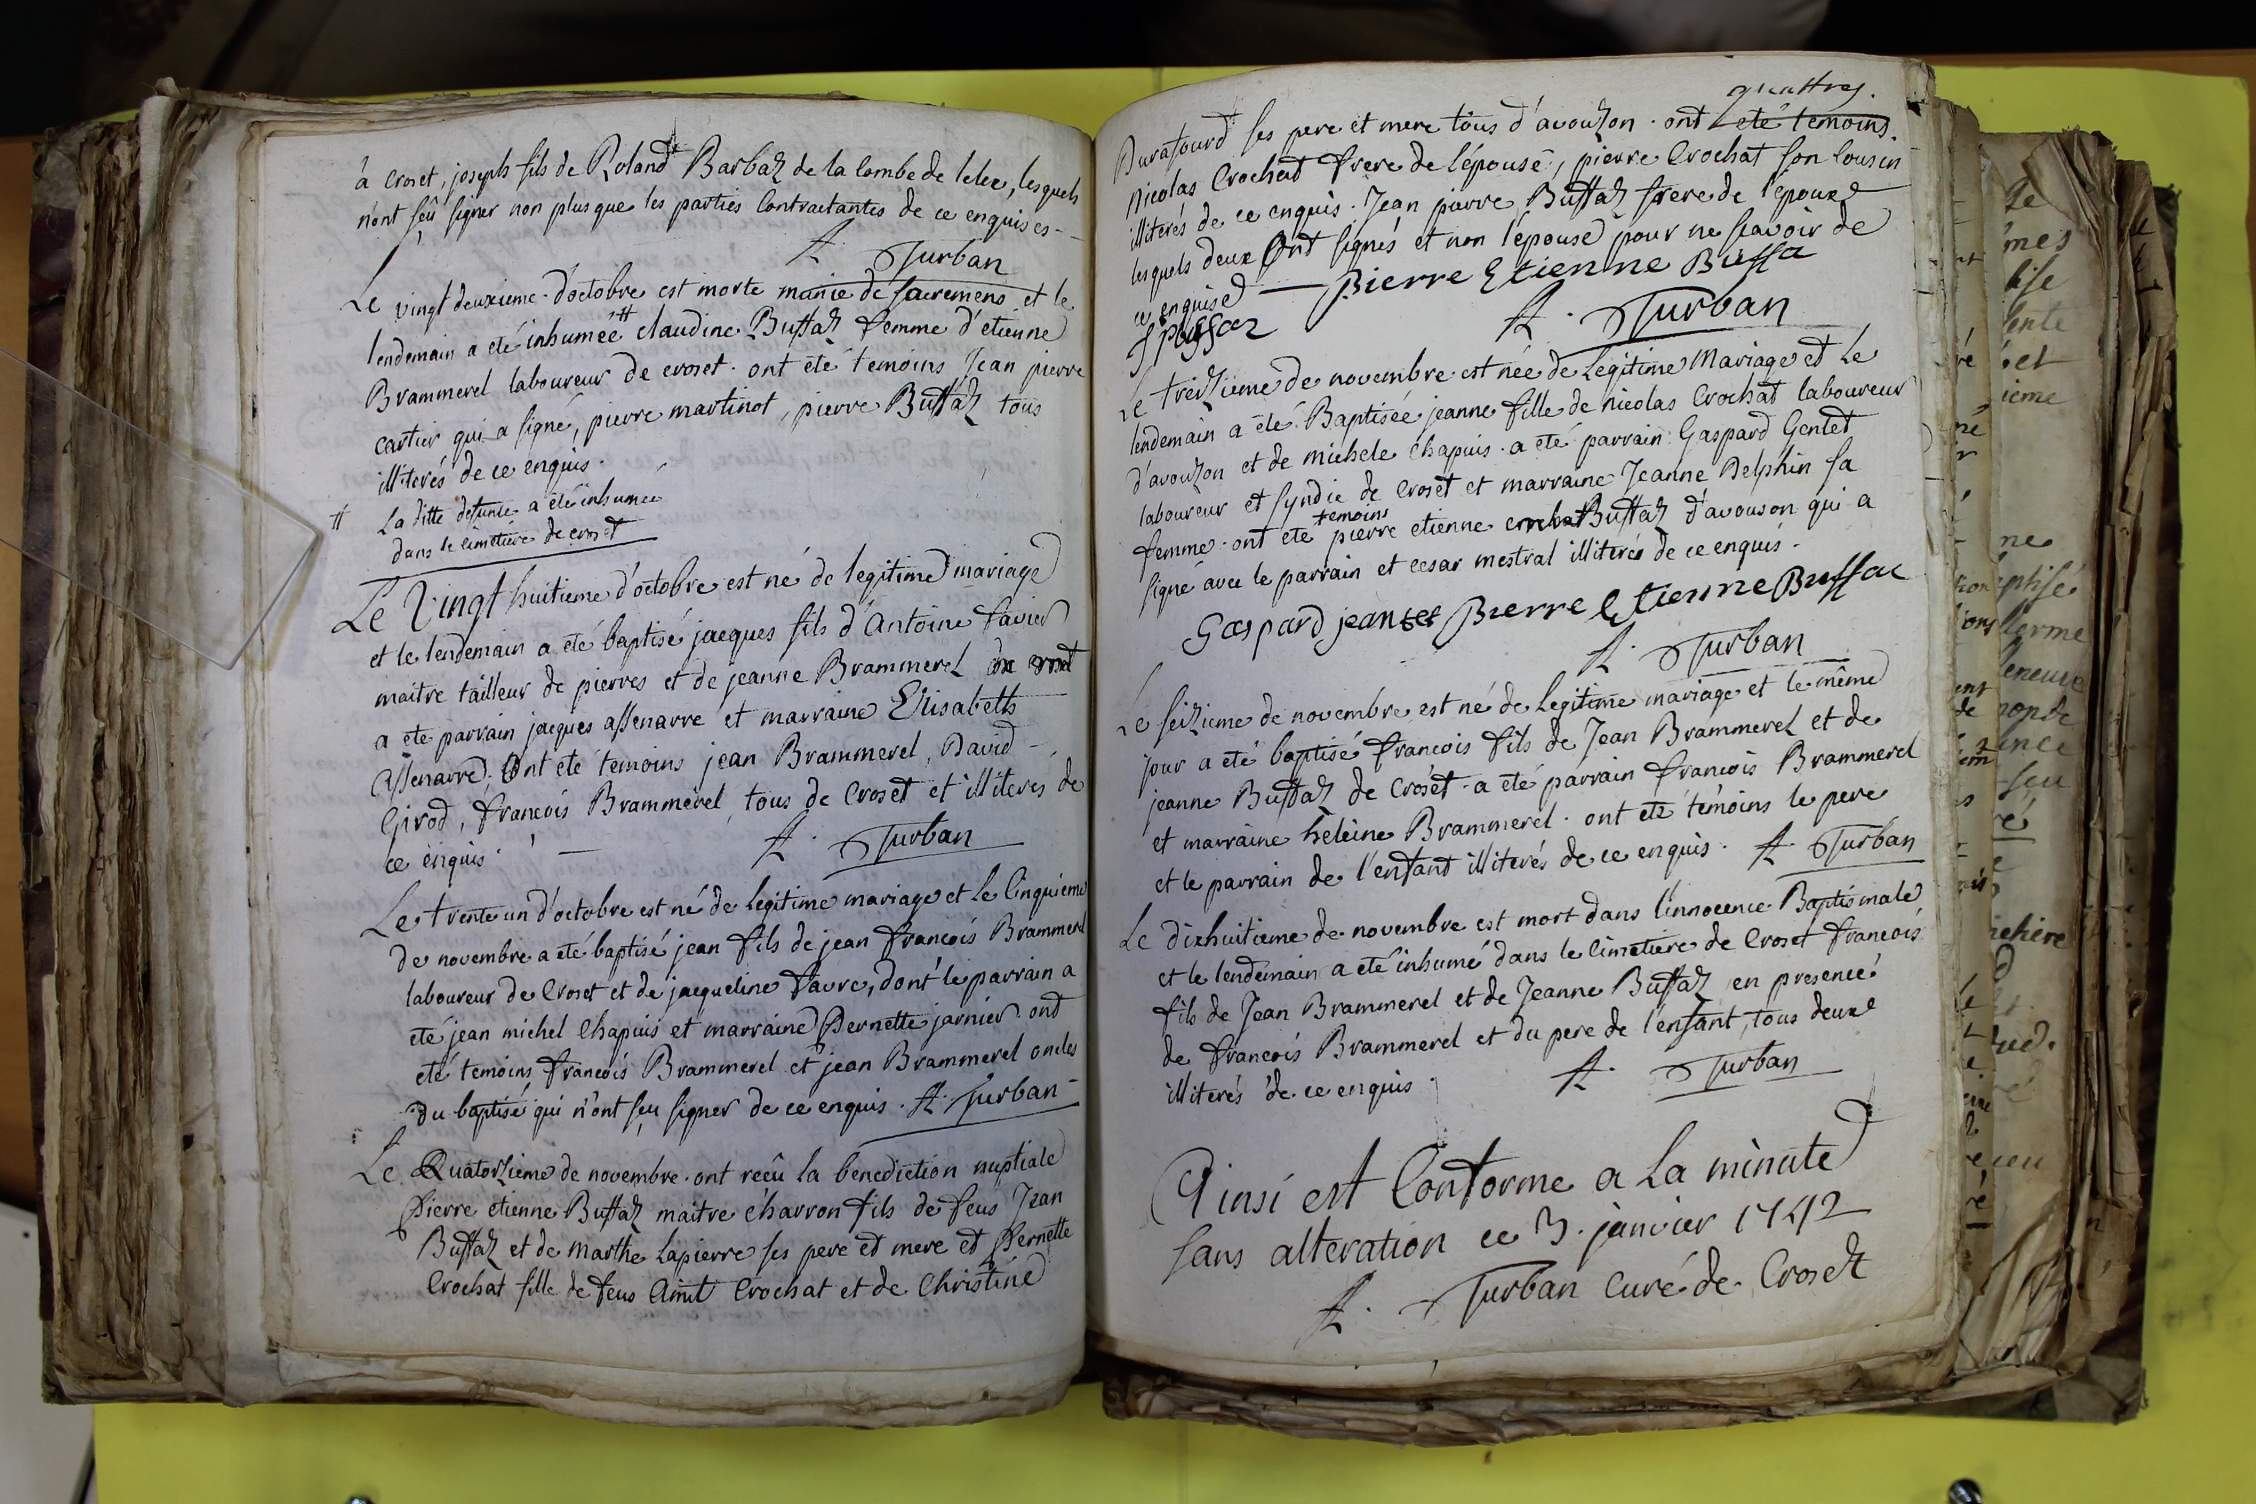 à croset, joseph fils de Roland Barbaz de la combe de lelex, lesquels
n'ont sçû signer non plus que les parties Contractantes de ce enquises -
A. Turban
Le vingt deuxieme d'octobre est morte munie de sacremens et le
lendemain a eté inhumée # claudine Buffaz femme d'etienne
Brammerel laboureur de croset. ont eté temoins Jean pierre
cartier qui a signé, pierre martinot, pierre Buffaz tous
illiterés de ce enquis.
# La ditte defunte a eté inhumée
dans le cimetiére de croset
Le Vingt huitieme d'octobre est né de legitime mariage
et le lendemain a eté baptisé jacques fils d'Antoine favier
maitre tailleur de pierres et de jeanne Brammerel de croset
a ete parrain jacques assenarre et marraine Elisabeth
assenarre. Ont eté temoins jean Brammerel, David
Girod, francois Brammerel, tous de Croset et illiterés de
ce enquis.
A. Turban
Le trente un d'octobre est né de legitime mariage et le Cinquieme
de novembre a eté baptisé jean fils de jean francois Brammerel
laboureur de Croset et de jacqueline favre, dont le parrain a
eté jean michel Chapuis et marraine Pernette jarnier ont
eté temoins francois Brammerel et jean Brammerel oncles
du baptisé qui n'ont sçu signer de ce enquis. A. Turban
Le Quatorzieme de novembre ont recû la benediction nuptiale
Pierre etienne Buffaz maitre charron fils de feus Jean
Buffaz et de Marthe Lapierre ses pere et mere et Pernette
Crochat fille de feus Amit Crochat et de Christine
quattres.
Durafourd ses pere et mere tous d'avouzon. ont eté temoins
Nicolas Crochat frere de l'épouse, pierre Crochat son Cousin
illiterés de ce enquis. Jean pierre Buffaz frere de l'epoux
lesquels deux Ont signés et non l'epouse pour ne scavoir de
ce enquise — Pierre Etienne Buffa
A. Turban
Le treizieme de novembre est née de Legitime Mariage et Le
lendemain a eté Baptisée jeanne fille de nicolas Crochat laboureur
d'avouzon et de michele Chapuis. a eté parrain Gaspard Gentet
laboureur et syndic de Croset et marraine Jeanne Delphin sa
femme. ont eté temoins pierre etienne Buffaz d'avouson qui a
signé avec le parrain et cesar mestral illiterés de ce enquis.
Gaspard jeantet Pierre Etienne Buffac
A. Turban
Le seizieme de novembre est né de Legitime mariage et le même
jour a eté baptisé francois fils de Jean Brammerel et de
jeanne Buffaz de Croset. a eté parrain francois Brammerel
et marraine heleine Brammerel. ont eté témoins le pere
et le parrain de l'enfant illiterés de ce enquis. A. Turban
Le dixhuitieme de novembre est mort dans l'innocence Baptismale
et le lendemain a eté inhumé dans le cimetiere de Croset francois
fils de Jean Brammerel et de Jeanne Buffaz en presence
de francois Brammerel et du pere de l'enfant, tous deux
illiterés de ce enquis
A. Turban
Ainsi est Conforme a La minute
sans alteration ce 3. janvier 1742
A. Turban Curé de Croset